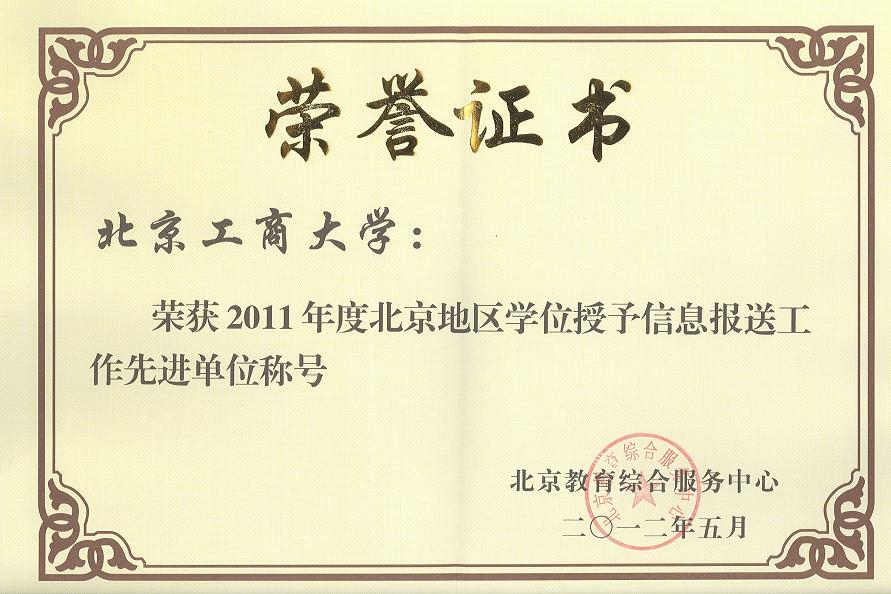 荣誉证书
北京工商大学：
荣获2011年度北京地区学位授予信息报送工
作先进单位称号
北京教育综合服务中心
二〇一二年五月
北京教育综合服务中心